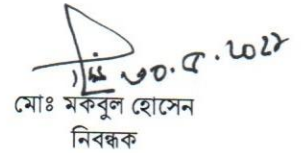 ৩০.৫.২০২২
মোঃ মকবুল হোসেন
নিবন্ধক